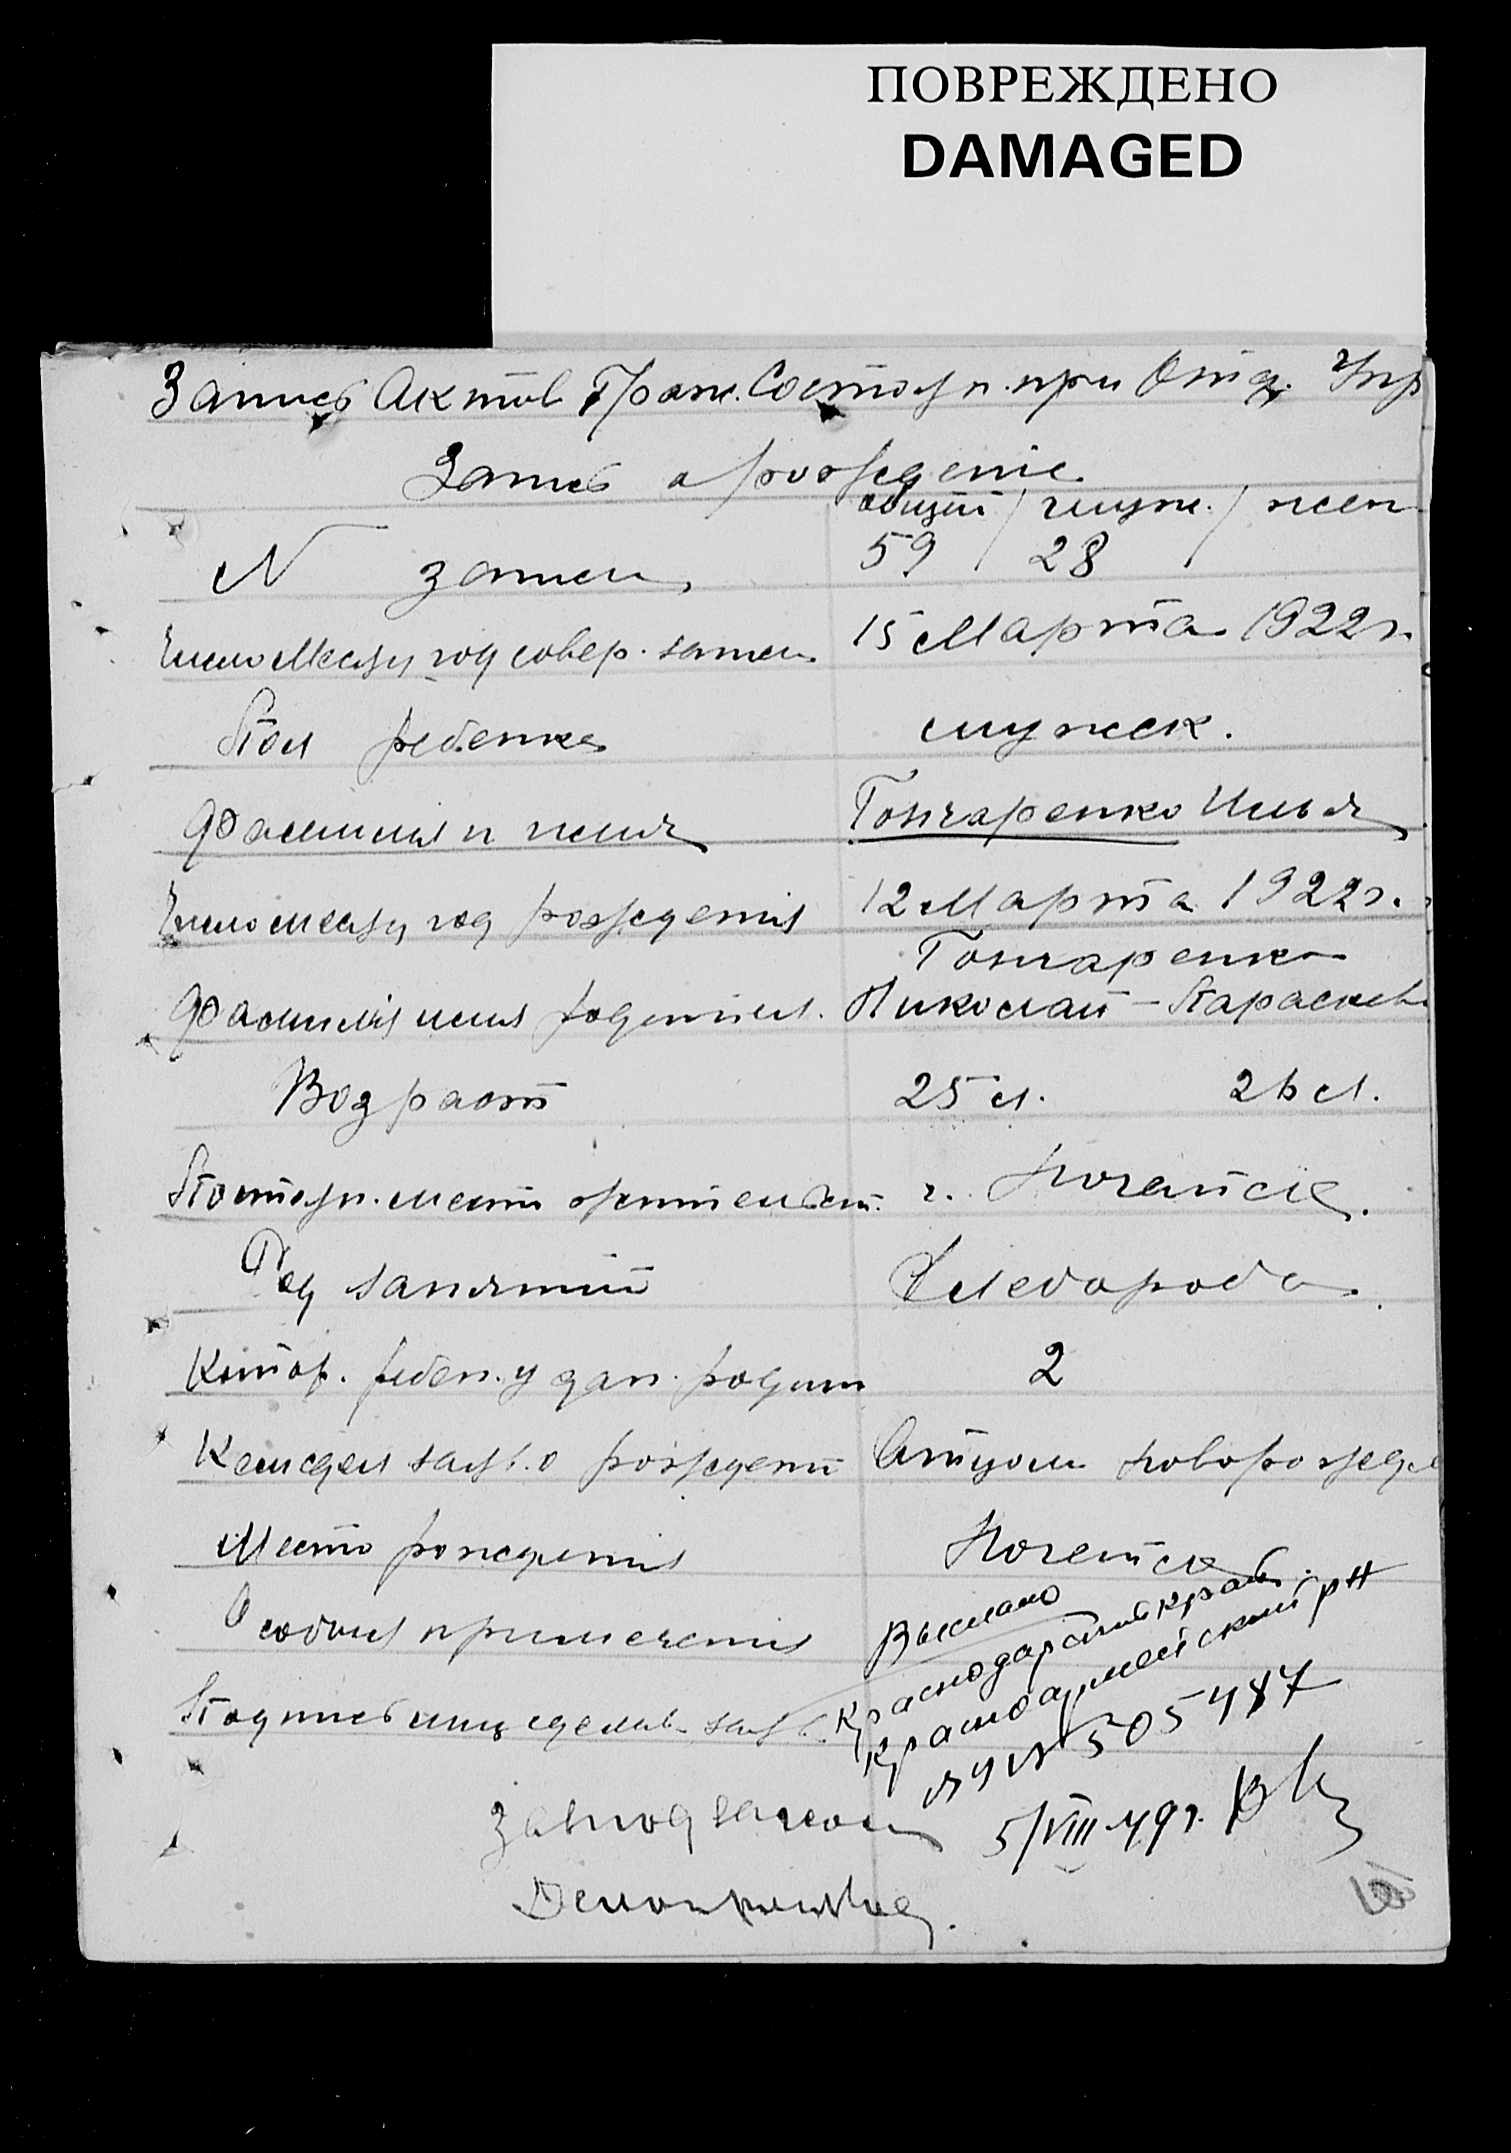 ПОВРЕЖДЕНО
DAMAGED
Запись Актов Граж. Состоян. при Отд. Упр
Запись о рождение
общий / муж. / жен
N записи 59 / 28 /
Число месяц год совер. записи 15 Марта 1922 г.
Пол ребенка мужск.
Фамилия и имя Гончаренко Илья
Число месяц год рождения 12 Марта 1922 г.
Гончаренко
Фамилия имя родител. Николай - Параскев
Возраст 25 л. 26 л.
Постоян. место жительст. г. Ногайск.
Род занятий Хлебороб
Котор. ребен. у дан. родит 2
Кем сдел заяв. о рождении Отцом новорожд
Место рождения Ногайск
Особыя примечания
Подпись лиц сделав. заяв.
Выслано
Краснодарский край
Красноармейский р-н
N 505487
5/VIII-49 г.
Завподзагсом